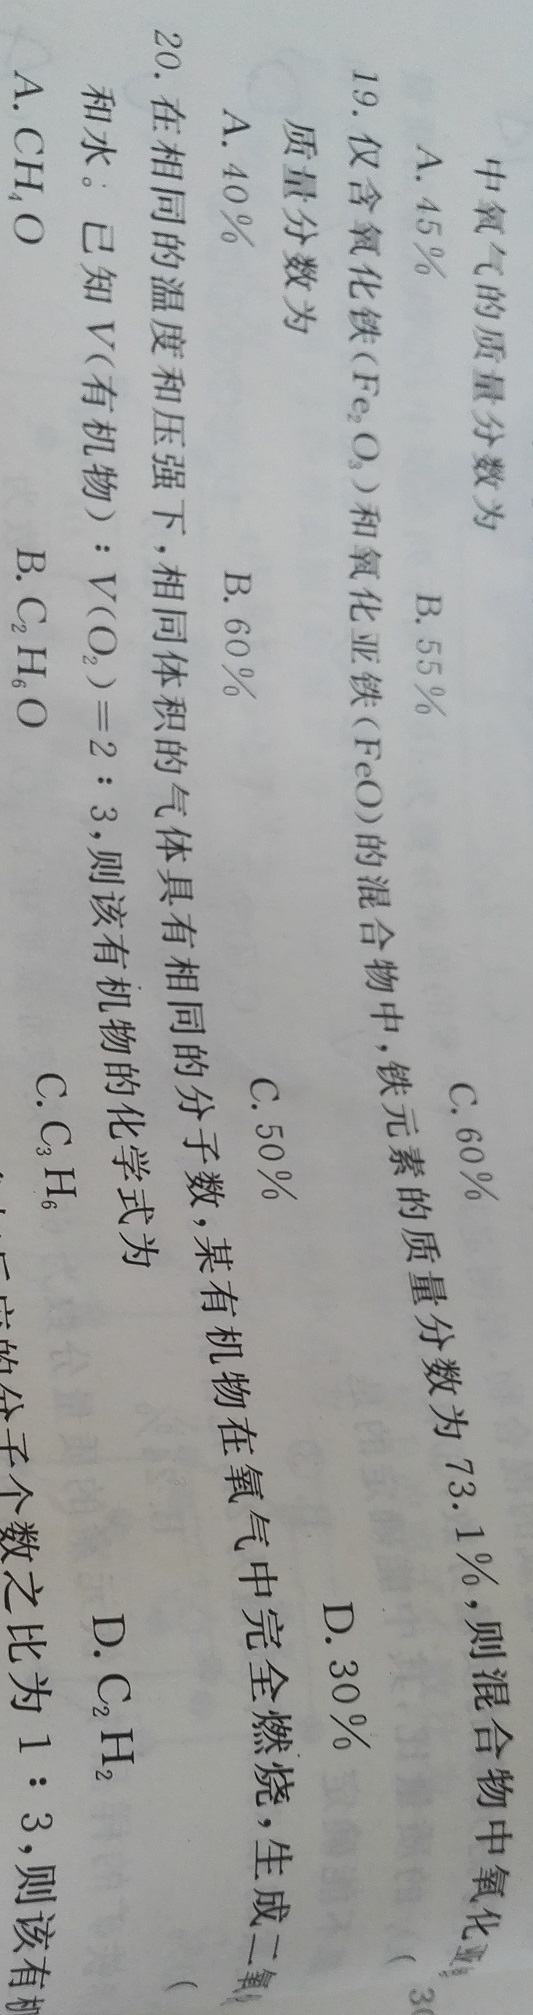 中氧气的质量分数为
A. 45% B. 55% C. 60%
19. 仅含氧化铁(Fe₂O₃)和氧化亚铁(FeO)的混合物中,铁元素的质量分数为 73.1%,则混合物中氧化亚
质量分数为 (
A. 40% B. 60% C. 50% D. 30%
20. 在相同的温度和压强下,相同体积的气体具有相同的分子数,某有机物在氧气中完全燃烧,生成二氧
和水。已知 V(有机物):V(O₂)=2:3,则该有机物的化学式为 (
A. CH₄O B. C₂H₆O C. C₃H₆ D. C₂H₂
反应的分子个数之比为 1:3,则该有机